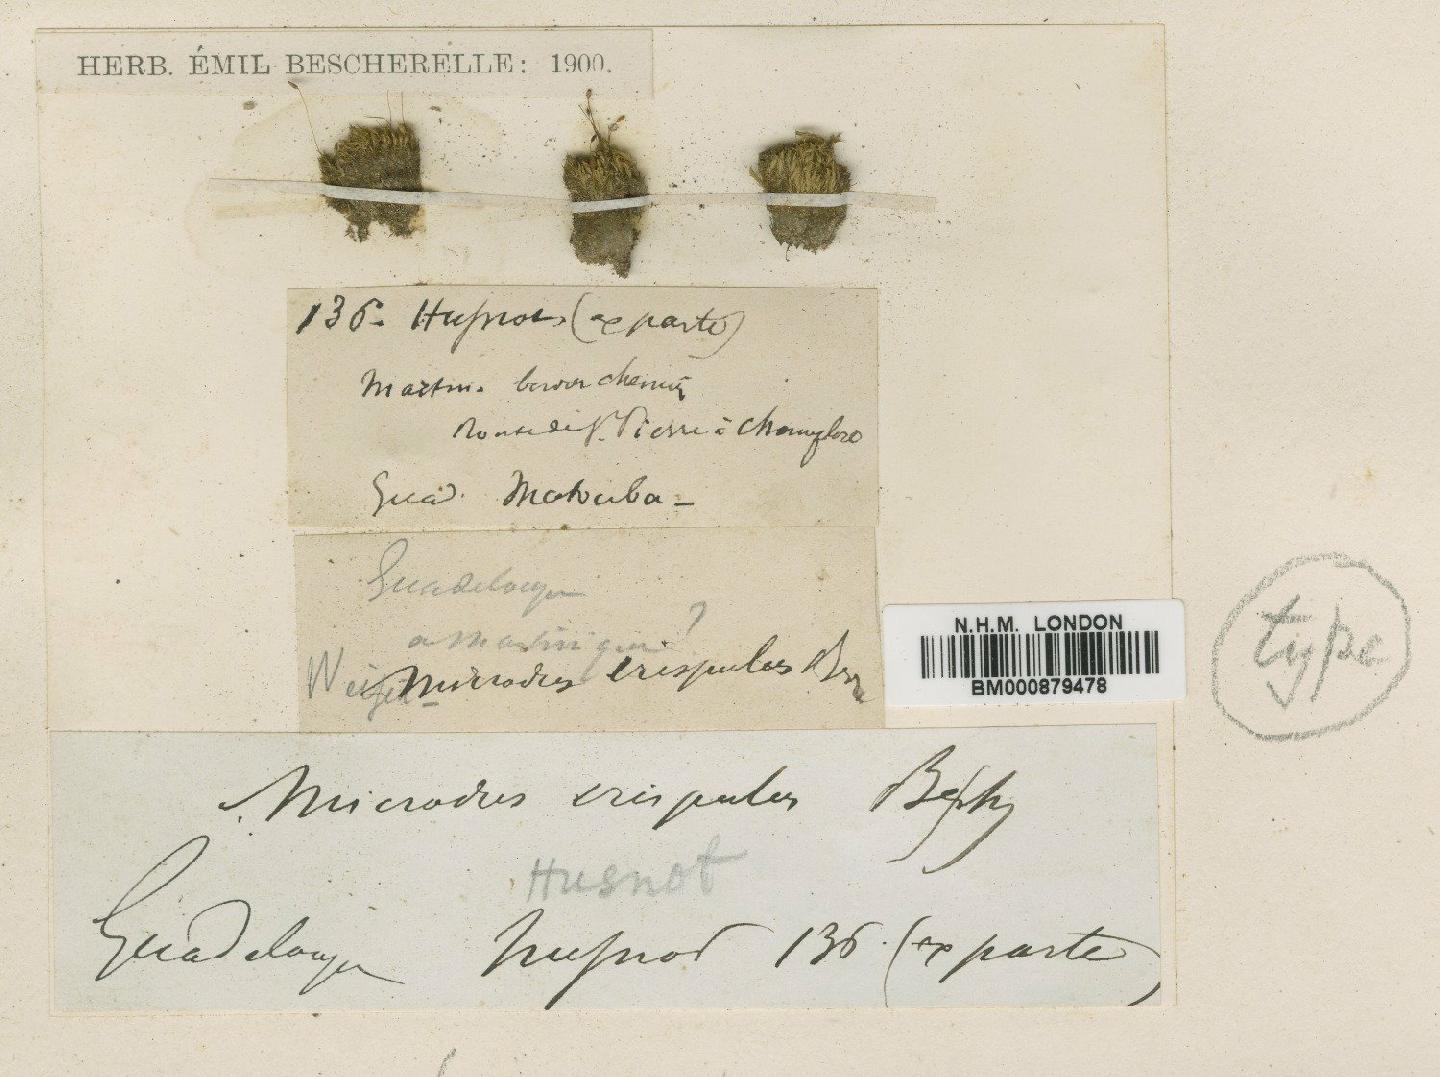 HERB. ÉMIL BESCHERELLE: 1900.
136. Husnot (ex parte)
Martin. chemin
Route de St. Pierre à
Guad. Matouba –
Guadeloupe
a Martinique?
Microdus crispulus
N.H.M. LONDON
BM000879478
type
Microdus crispulus Besch
Husnot
Guadeloupe Husnot 136. (ex parte)